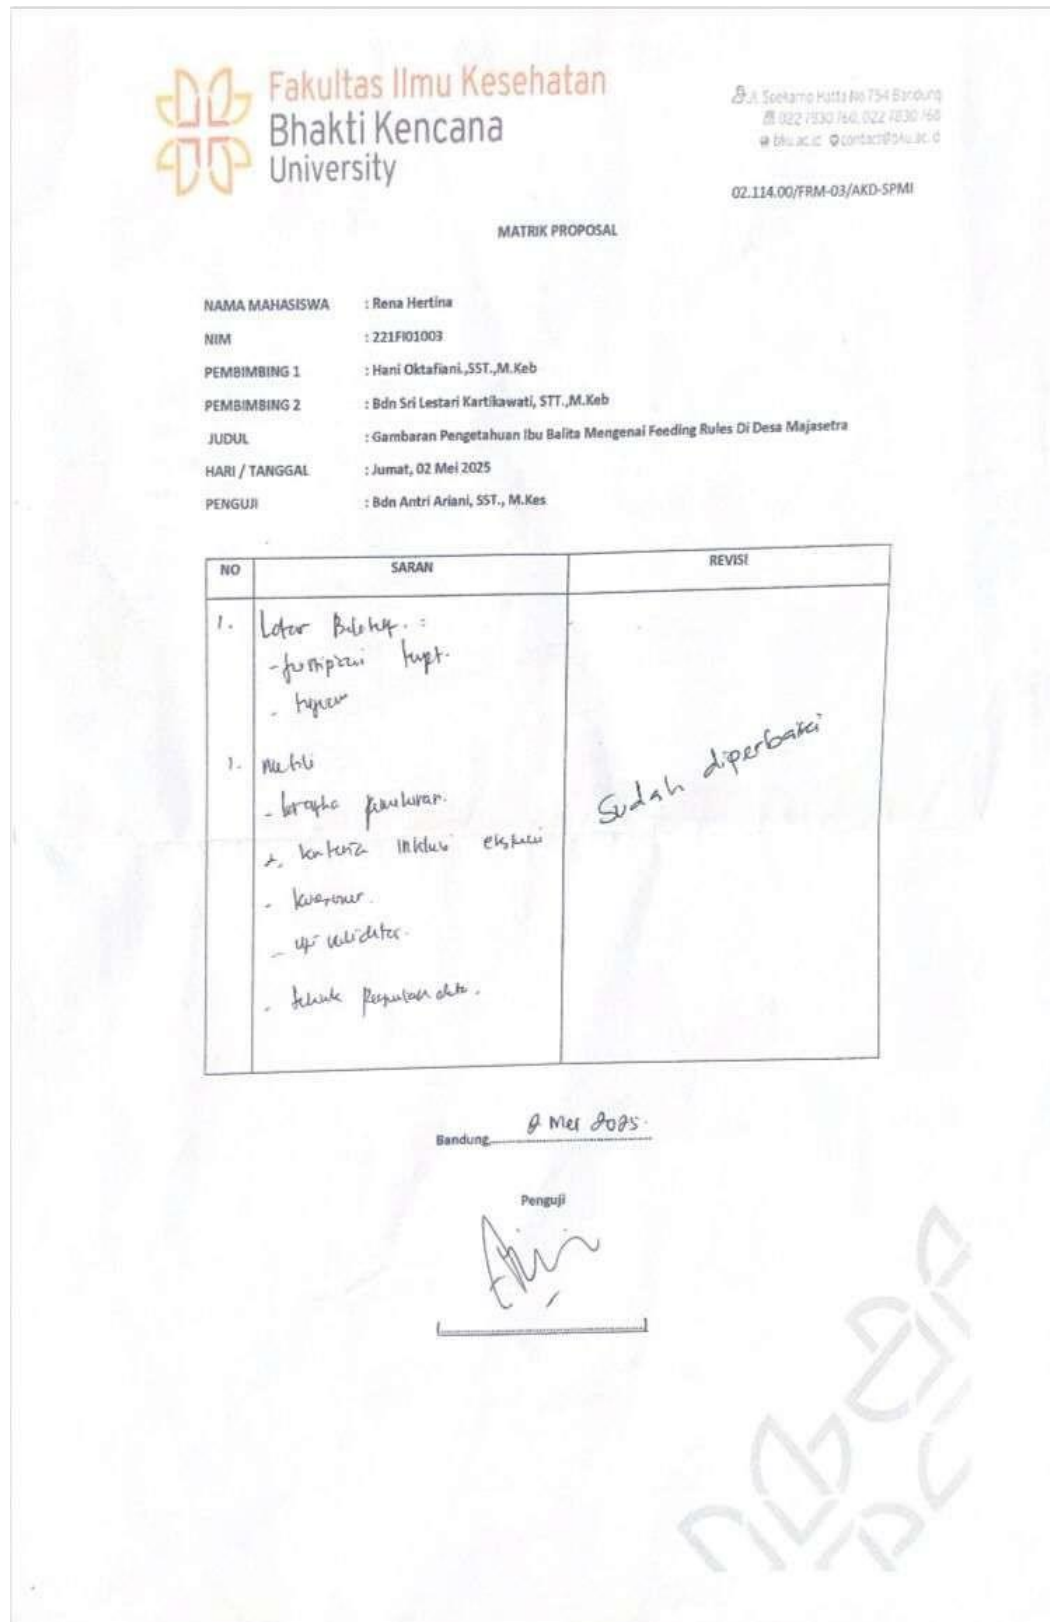 Fakultas Ilmu Kesehatan
Bhakti Kencana
University
Jl. Soekarno Hatta No 754 Bandung
022 7830 760, 022 7830 768
bku.ac.id contact@bku.ac.id
02.114.00/FRM-03/AKD-SPMI
MATRIK PROPOSAL
NAMA MAHASISWA : Rena Hertina
NIM : 221FI01003
PEMBIMBING 1 : Hani Oktafiani.,SST.,M.Keb
PEMBIMBING 2 : Bdn Sri Lestari Kartikawati, STT.,M.Keb
JUDUL : Gambaran Pengetahuan Ibu Balita Mengenai Feeding Rules Di Desa Majasetra
HARI / TANGGAL : Jumat, 02 Mei 2025
PENGUJI : Bdn Antri Ariani, SST., M.Kes
NO SARAN REVISI
1. Latar :
-
- tujuan
-
- kriteria inklusi eksklusi
- kuesioner.
- uji validitas.
- data.
Sudah diperbaiki
Bandung, 2 Mei 2025.
Penguji